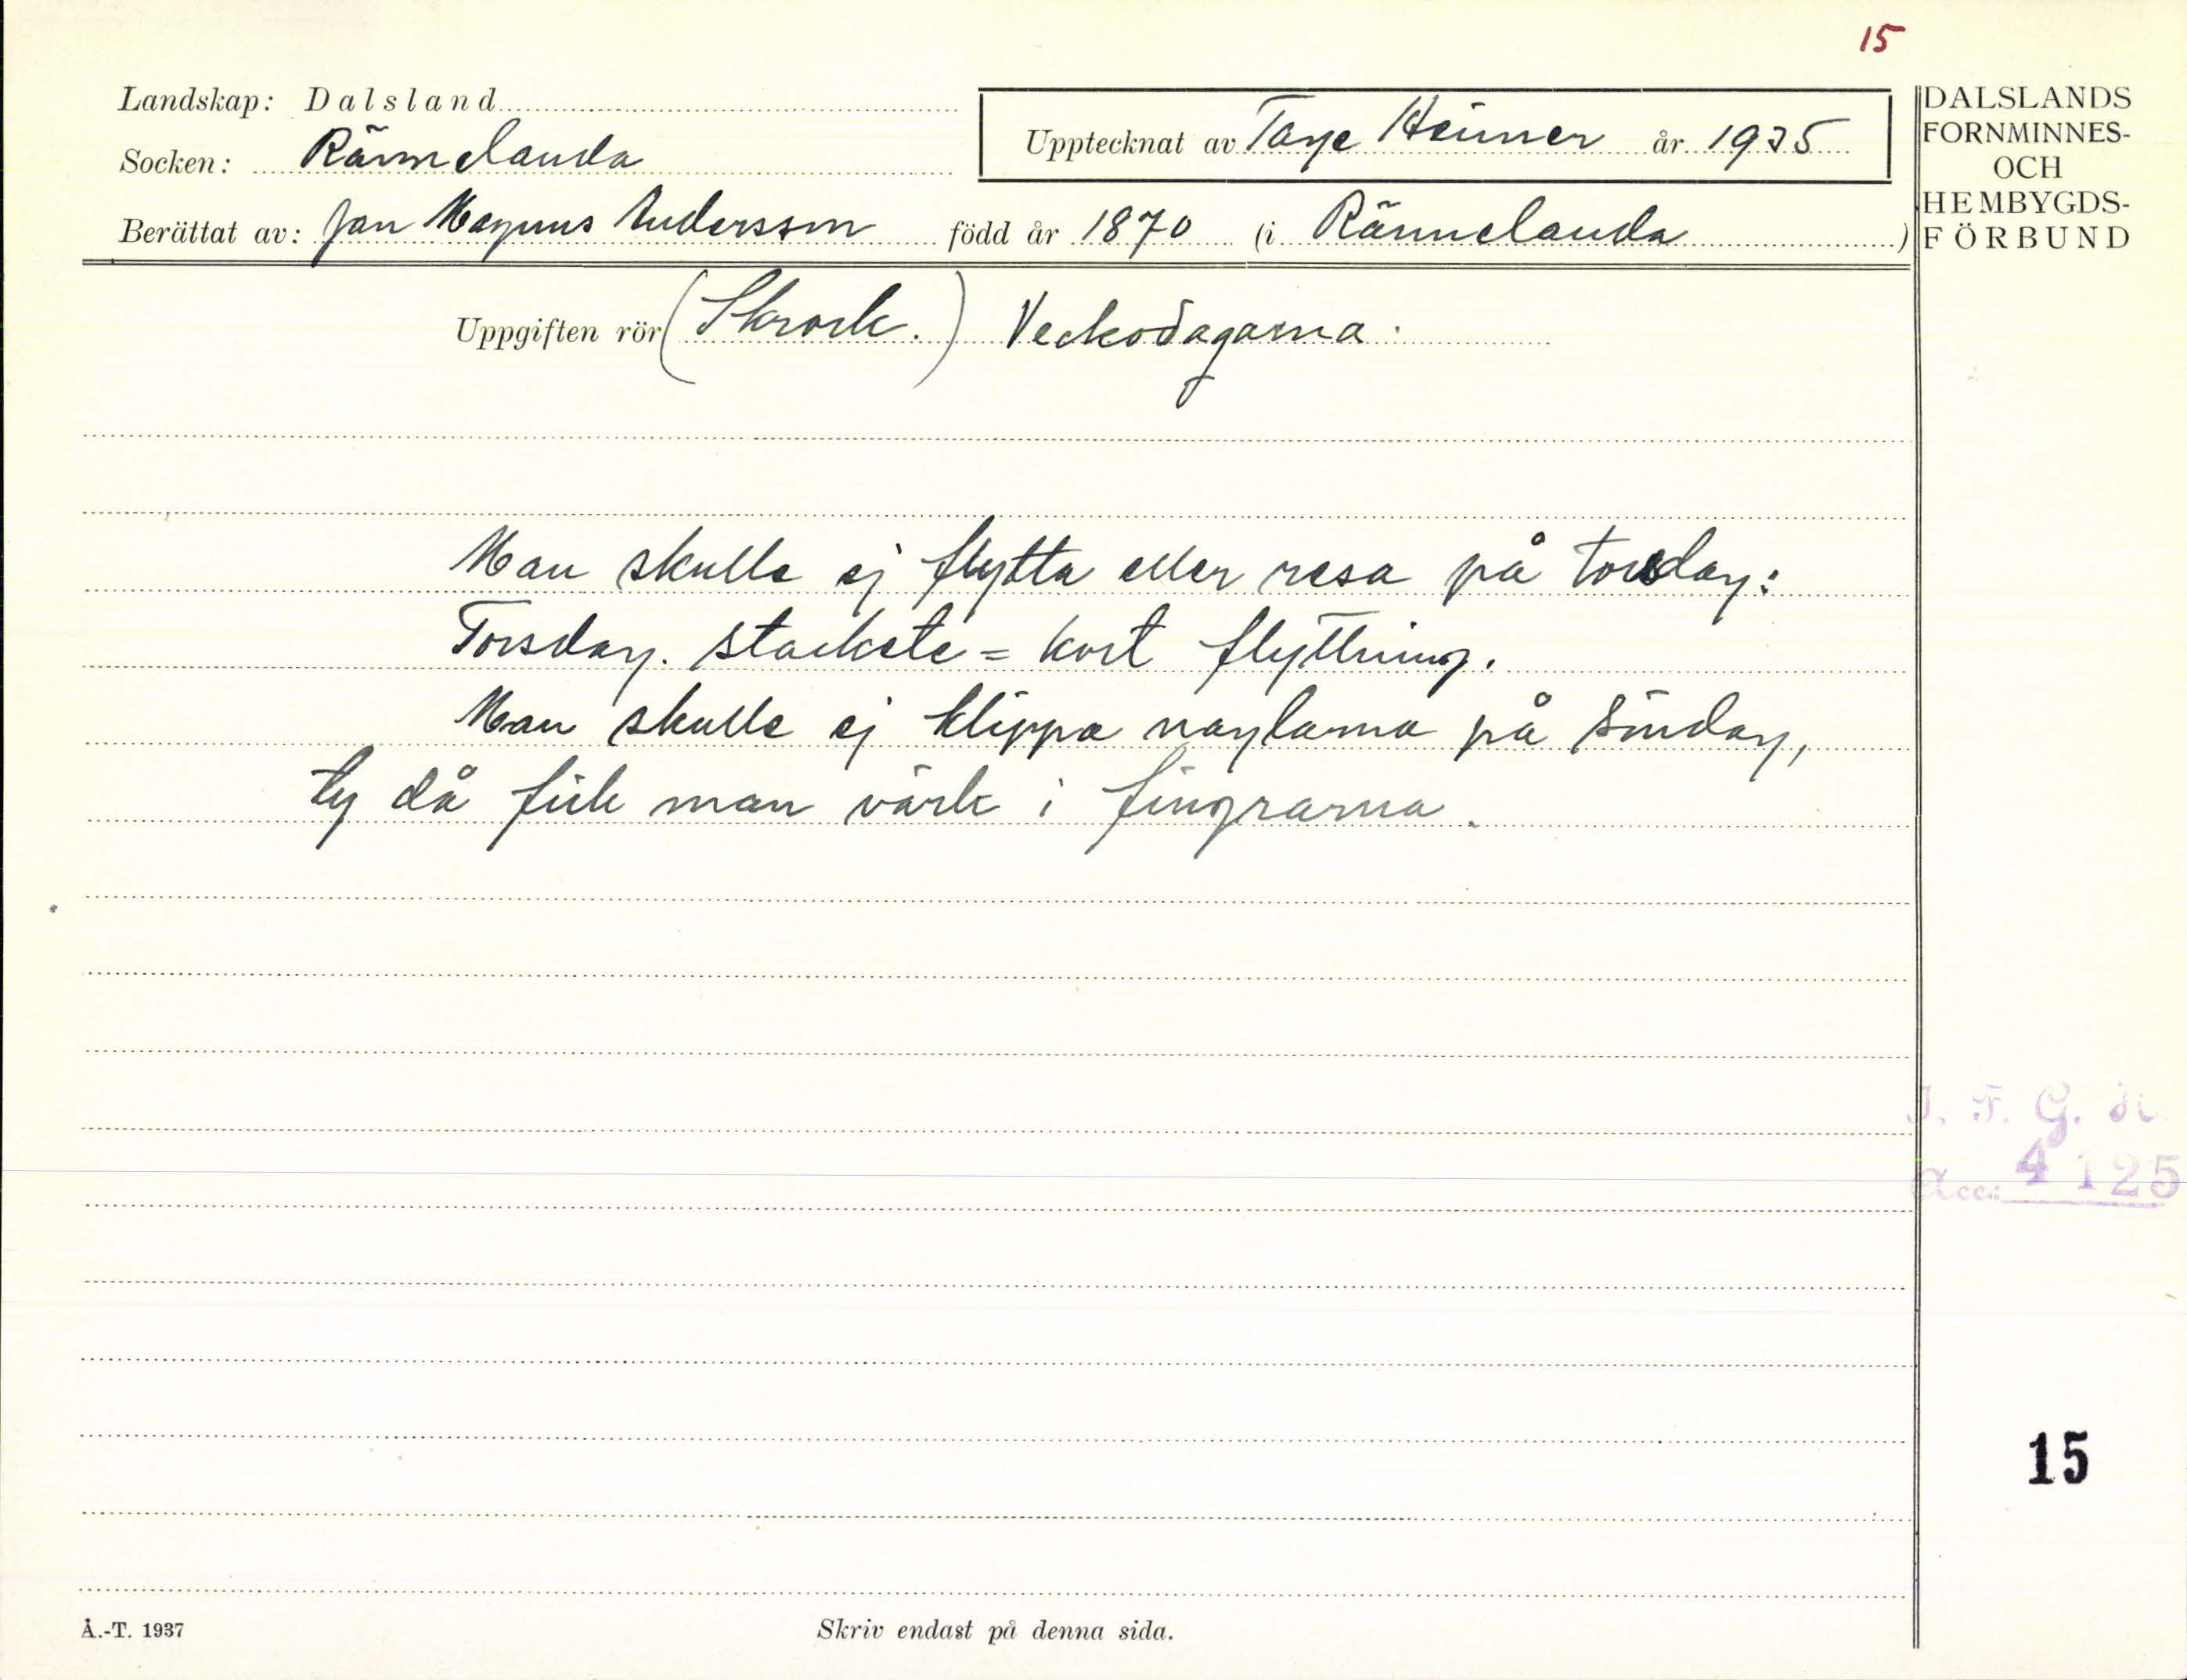 15
Landskap: Dalsland
Socken: Rännelanda
Upptecknat av Tage Heimer år 1935
Berättat av: Jan Magnus Andersson född år 1870 (i Rännelanda)
DALSLANDS
FORNMINNES-
OCH
HEMBYGDS-
FÖRBUND
Uppgiften rör (Skrock.) Veckodagarna.
Man skulle ej flytta eller resa på torsdag:
Torsdag. stackete = kort flyttning.
Man skulle ej klippa naglarna på söndag,
ty då fick man värk i fingrarna.
I. F. G. 
Acc: 4125
15
Å.-T. 1937
Skriv endast på denna sida.